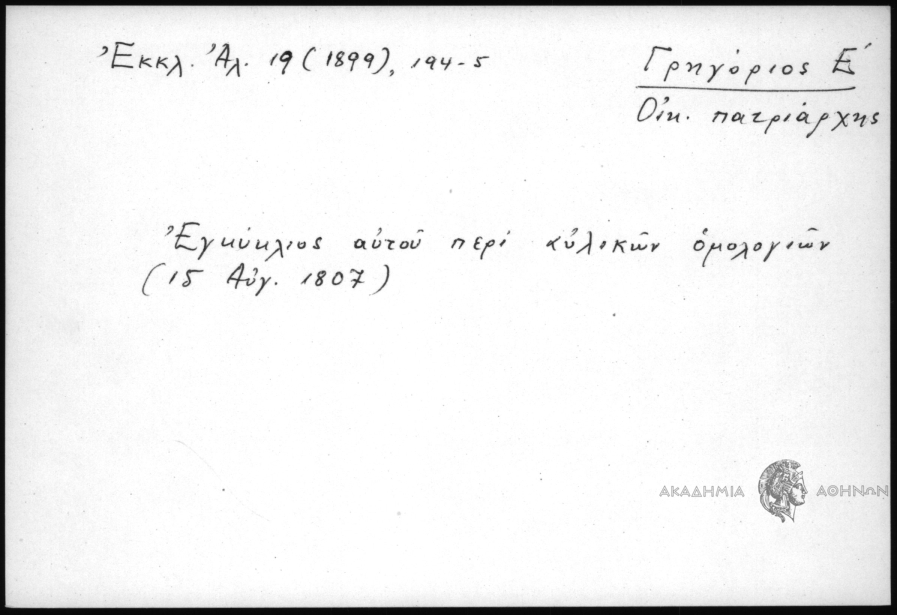 Ἐκκλ. Ἀλ. 19 (1899), 194-5
Γρηγόριος Ε΄
Οἰκ. πατριάρχης
Ἐγκύκλιος αὐτοῦ περί αὐλικῶν ὁμολογιῶν
(15 Αὐγ. 1807)
ΑΚΑΔΗΜΙΑ ΑΘΗΝΩΝ